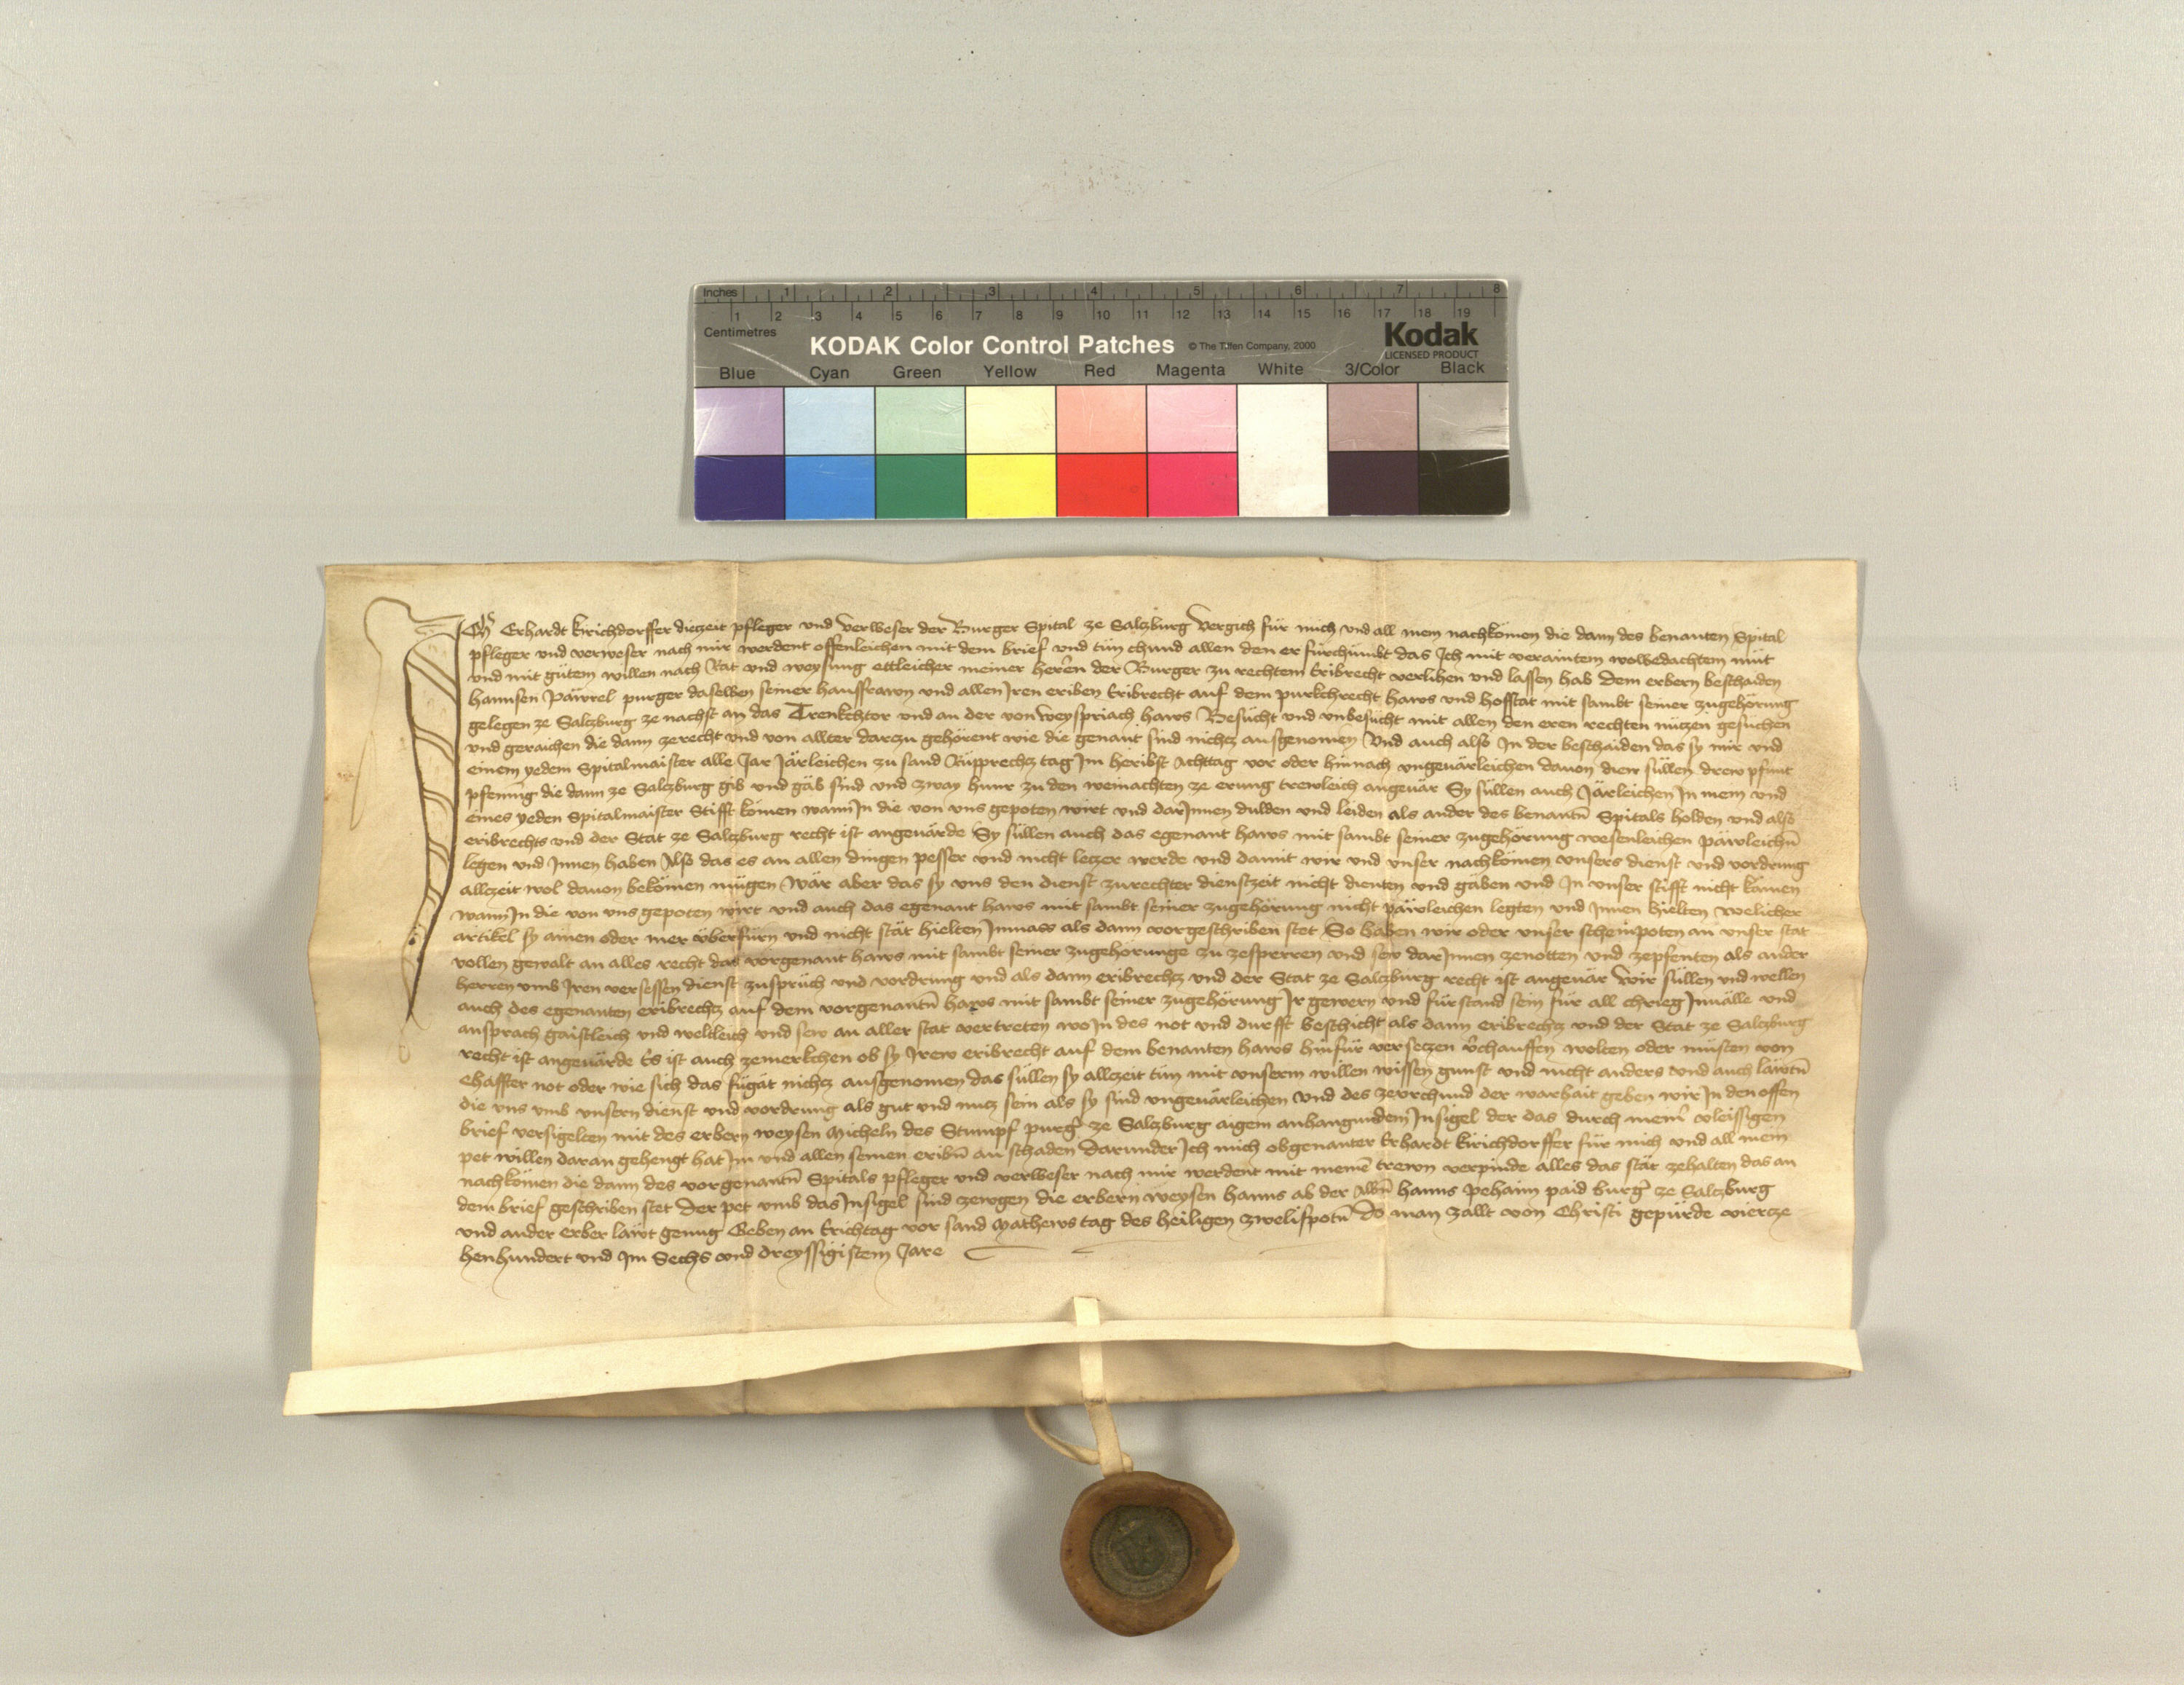 Inches 1 2 3 4 5 6 7 8
1 2 3 4 5 6 7 8 9 10 11 12 13 14 15 16 17 18 19
Centimetres
KODAK Color Control Patches © The Tiffen Company, 2000 Kodak
LICENSED PRODUCT
Blue Cyan Green Yellow Red Magenta White 3/Color Black
Ich Erhardt kirichdorffer diezeit pfleger vnd verweser der Burger Spital ze Salczburg vergich für mich vnd all mein nachkömen die dann des benanten Spital
pfleger vnd verweser nach mir werdent offenleichen mit dem brief vnd tün chund allen den er fürchümbt das Ich mit veraintem wolbedachtem müt
vnd mit gütem willen nach Rat vnd weysung ettleicher meiner herren der Burger zu rechtem Eribrecht verlihen vnd lassen hab Dem erbern beschaiden
hannsen Päwrel purger daselben seiner hausfrawn vnd allen Iren eriben Eribrecht auf dem purkchrecht haws vnd hofstat mit sambt seiner zugehörung
gelegen ze Salczburg ze nachst an das Trenkchtor vnd an der von weyspriach haws Besücht vnd vnbesücht mit allen den eren rechten nüczen gesüchen
vnd geraichen die dann zerecht vnd von allter darczu gehörent wie die genant sind nichcz ausgenomen Vnd auch also In der beschaiden das sy mir vnd
einem yedem Spitalmaister alle Jar Järleichen zu sand Rüpprechcz tag Im heribst Achttag vor oder hinnach vngeuärleichen dauon dien süllen drew pfunt
pfenning die dann ze Salczburg gib vnd gäb sind vnd zway hunr zu den weinachten ze erung trewleich angeuär Sy süllen auch Järleichen In mein vnd
eines yeden Spitalmaister Stifft kömen wann In die von vns gepoten wirt vnd darInnen dulden vnd leiden als ander des benantn Spitals holden vnd also
eribrechts vnd der Stat ze Salczburg recht ist angeuärde Sy süllen auch das egenant haws mit sambt seiner zugehörung wesenleichen päwleichn
legen vnd Innen haben Also das es an allen dingen pesser vnd nicht leczer werde vnd damit wir vnd vnser nachkömen vnsers dienst vnd vordrung
allczeit wol dauon bekömen mügen Wär aber das sy vns den dienst zurechter dienstzeit nicht dienten vnd gäben vnd In vnser stifft nicht kämen
wann In die von vns gepoten wirt vnd auch das egenant haws mit sambt seiner zugehörung nicht päwleichen legten vnd Innen hielten welicher
artikel sy ainen oder mer vberfürn vnd nicht stät hielten Inmass als dann vorgeschriben stet So haben wir oder vnser scheinpoten an vnser stat
vollen gewalt an alles recht das vorgenant haws mit sambt seiner zugehörunge zu zesperren vnd sew darInnen zenötten vnd zepfenten als ander
herren vmb Iren versessen dienst zusprüch vnd vordrung vnd als dann eribrechcz vnd der Stat ze Salczburg recht ist angeuär Wir süllen vnd wellen
auch des egenanten eribrechcz auf dem vorgenantn haws mit sambt seiner zugehörung Ir gewern vnd fürstand sein für all chrieg Inuälle vnd
ansprach gaistleich vnd weltleich vnd sew an aller stat vertreten wo In des not vnd durfft beschicht als dann eribrechcz vnd der Stat ze Salczburg
recht ist angeuärde Es ist auch zemerkchen ob sy Irew eribrecht auf dem benanten haws hinfür verseczen vchauffen wolten oder müsten von
Ehaffter not oder wie sich das fügät nichcz ausgenomen das süllen sy allczeit tün mit vnserm willen wissen gunst vnd nicht anders vnd auch läwtn
die vns vmb vnsern dienst vnd vordrung als gut vnd nucz sein als sy sind vngeuärleichen Vnd des zevrchund der warhait geben wir In den offen
brief versigelten mit des erbern weysen Micheln des Stumpf purger ze Salczburg aigem anhangundem Insigel der das durch meinr vleissigen
pet willen daran gehengt hat Im vnd allen seinen eribn an schaden Darunder Ich mich obgenanter Erhardt kirichdorffer für mich vnd all mein
nachkömen die dann des vorgenantn Spitals pfleger vnd verweser nach mir werdent mit meinen trewn verpinde alles das stät zehalten das an
dem brief geschriben stet Der pet vmb das Insigel sind zewgen die erbern weysen hanns ab der Albn hanns pehaim paid burger ze Salczburg
vnd ander Erber läwt genug Geben an Erichtag vor sand Mathews tag des heiligen zwelifpotn Do man zallt von Christi gepürde vierczes
henhundert vnd Im Sechs vnd dreyssigistem Jare